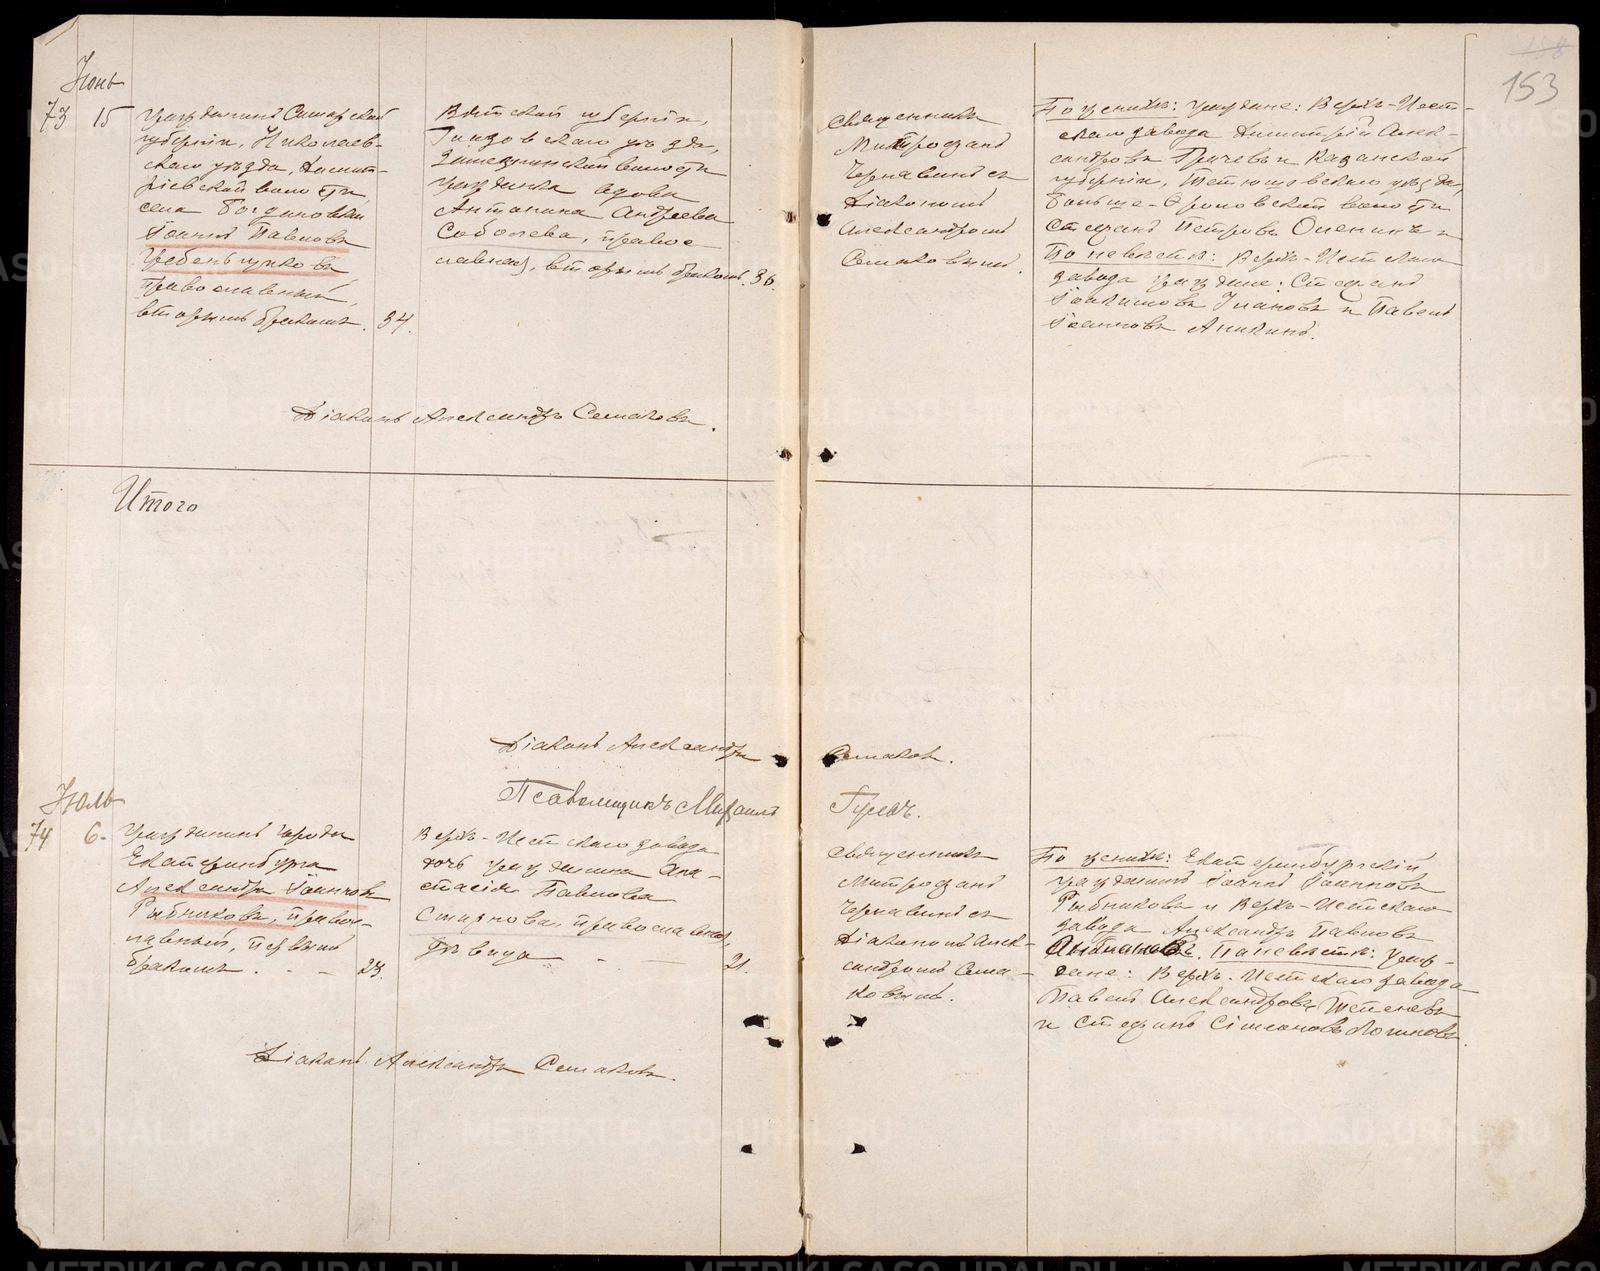 153
Июнь
73 15 гражданинъ Самарской
губернiи, Николаев-
скаго уѣзда, Дмит-
рiевской волости,
села Богдановки
Iоаннъ Павловъ
Гребенщиковъ
православный,
вторымъ бракомъ. 34.
Вятской губернiи,
Глазовскаго уѣзда,
волости
гражданка вдова
Антонина Андреева
Соболева, право-
славная, вторымъ бракомъ. 36.
Священникъ
Митрофанъ
Чернавинъ съ
Дiакономъ
Александромъ
Семаковымъ.
По женихѣ: граждане: Верхъ-Исет-
скаго завода Димитрiй Алек-
сандровъ Грачевъ и Казанской
губернiи, Тетюшевскаго уѣзда,
волости
Стефанъ Петровъ и
По невѣстѣ: Верхъ-Исетскаго
завода граждане: Стефанъ
Iоакимовъ и Павелъ
Iоанновъ Аникинъ.
Дiаконъ Александръ Семаковъ.
Итого
Дiаконъ Александръ Семаковъ.
Псаломщикъ Михаилъ
Июль
74 6. Гражданинъ города
Екатеринбурга
Александръ Iоанновъ
Рыбниковъ, правос-
лавный, первымъ
бракомъ. 23.
Верхъ-Исетскаго завода
дочь гражданина Ана-
стасiя Павлова
Смирнова, православная,
дѣвица 21.
Священникъ
Митрофанъ
Чернавинъ съ
Дiакономъ Алек-
сандромъ Сема-
ковымъ.
По женихѣ: Екатеринбургскiй
гражданинъ Iоаннъ Iоанновъ
Рыбниковъ и Верхъ-Исетскаго
завода Александръ Павловъ
По невѣстѣ: граж-
дане: Верхъ-Исетскаго завода
Павелъ Александровъ
и Стефанъ Симеоновъ Логиновъ.
Дiаконъ Александръ Семаковъ.
METRIKI.GASO-URAL.RU